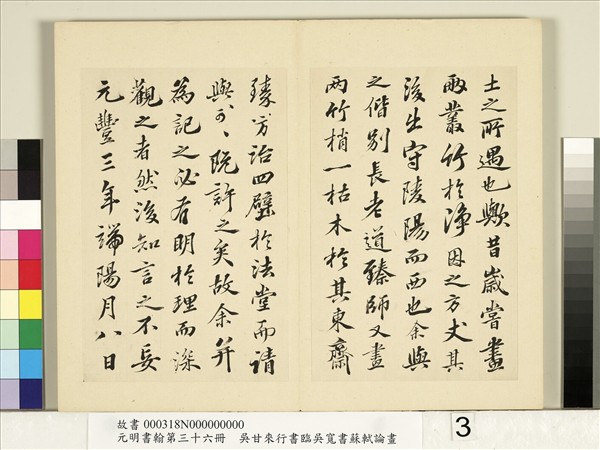 士之所遇也歟昔歲嘗畫
兩叢竹於淨因之方丈其
後出守陵陽而西也余與
之偕別長老道臻師又畫
兩竹梢一枯木於其東齋
臻方治四壁於法堂而請
與可、既許之矣故余并
為記之必有明於理而深
觀之者然後知言之不妄
元豐三年端陽月八日
故書 000318N000000000
元明書翰第三十六冊 吳甘來行書臨吳寬書蘇軾論畫
3